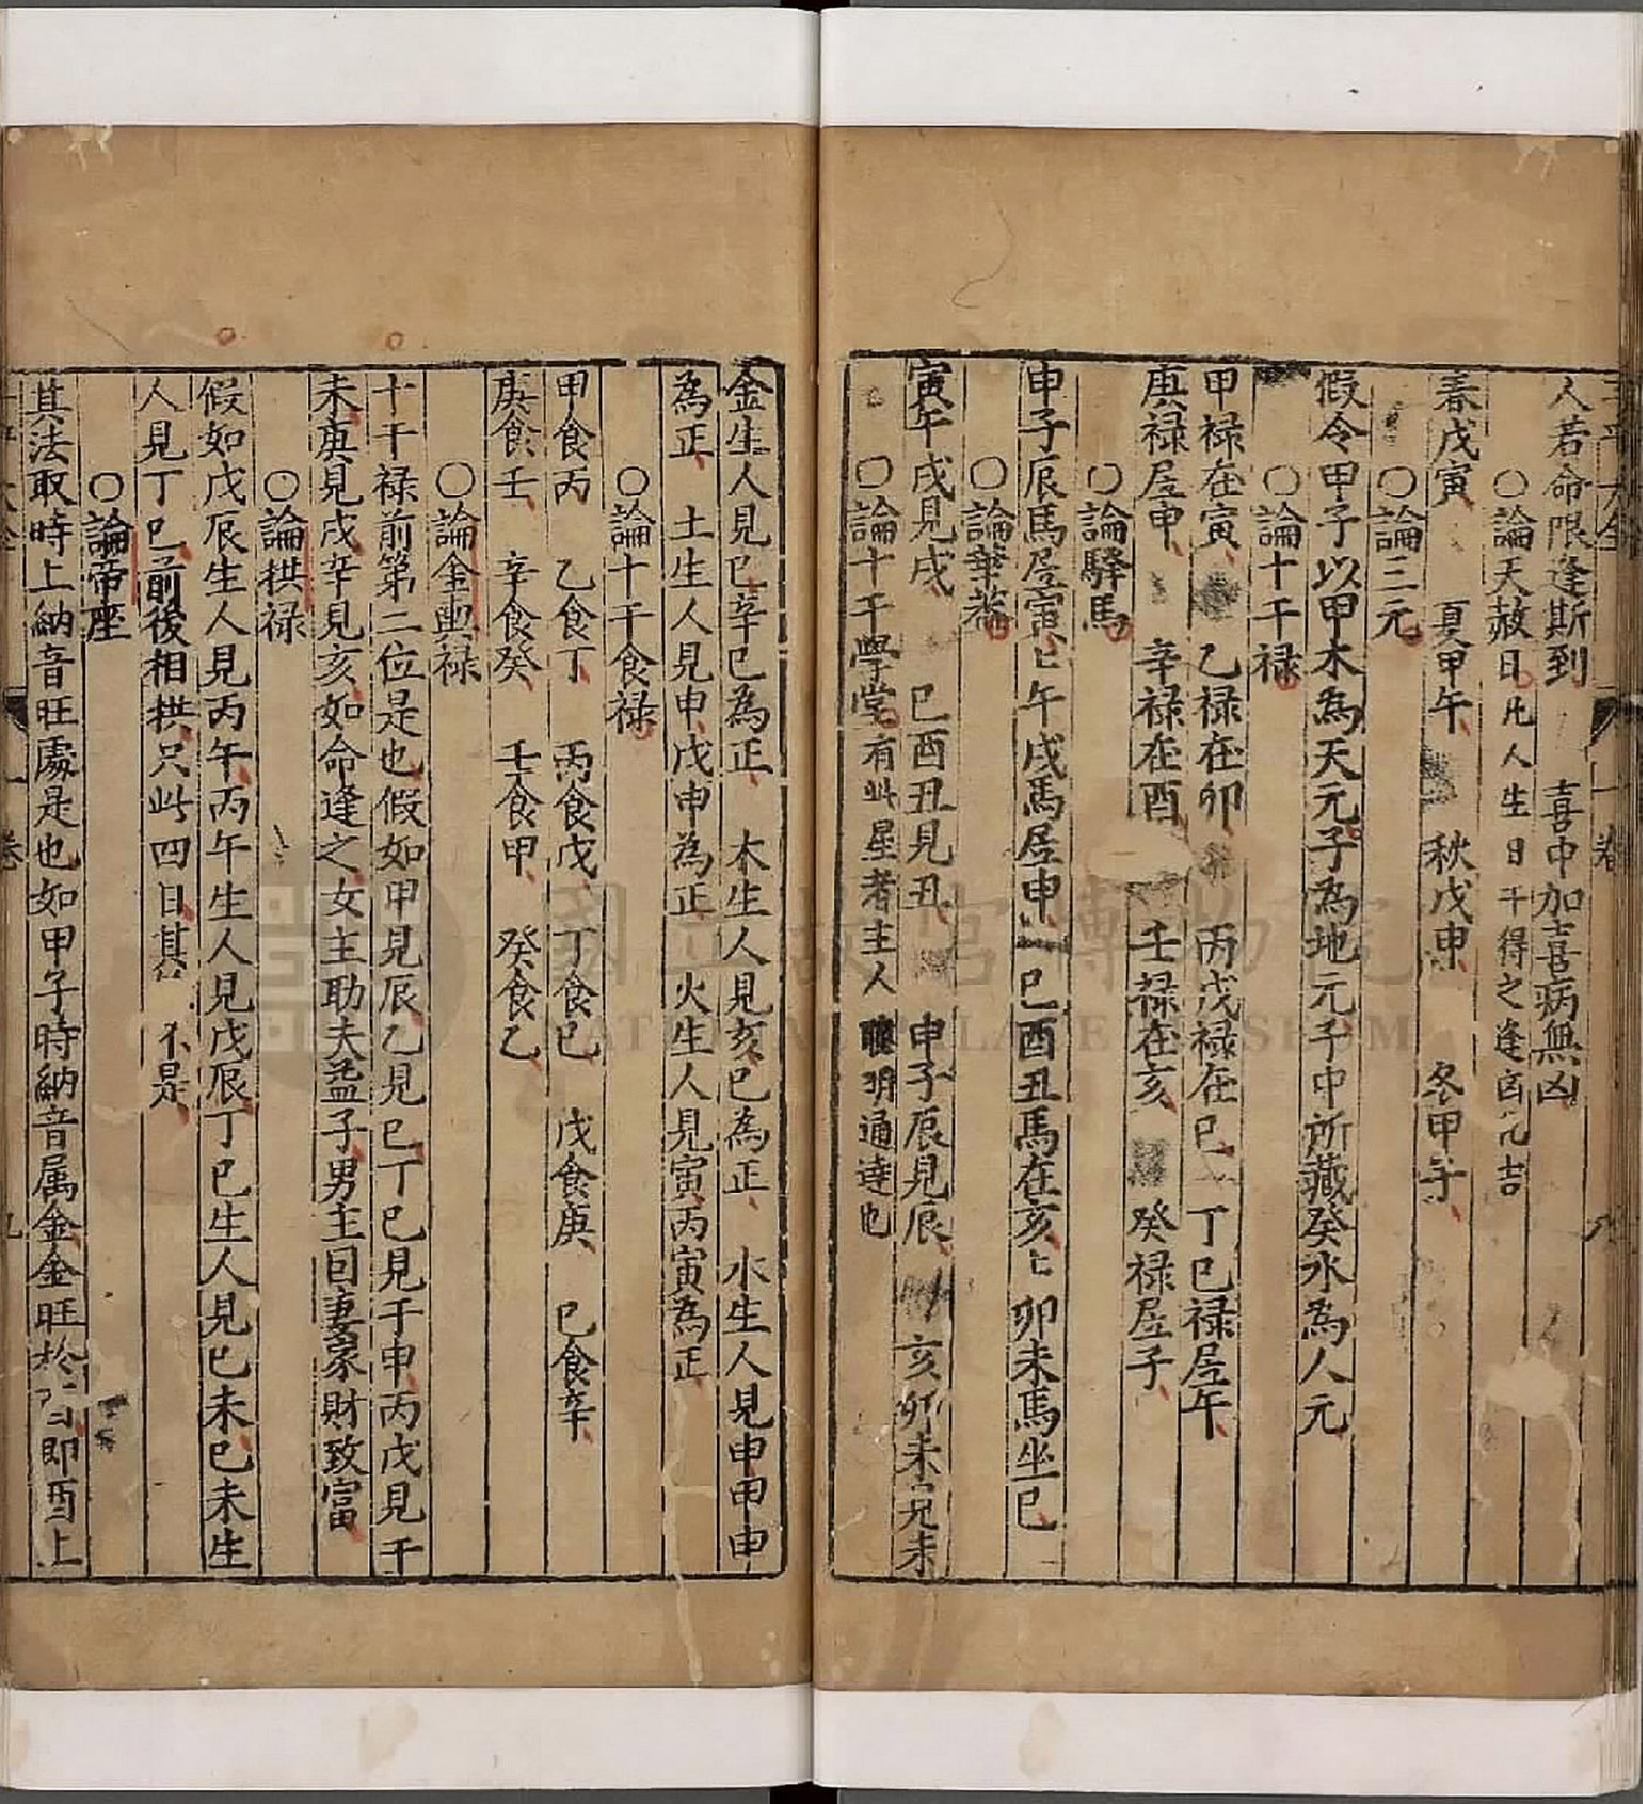 人若命限逢斯到　喜中加喜病無凶
○論天赦日凡人生日干得之逢宮元吉
春戊寅　夏甲午　秋戊申　冬甲子
○論三元
假令甲子以甲木為天元子為地元千中所藏癸水為人元
○論十干禄
甲禄在寅　乙禄在卯　丙戊禄在巳　丁巳禄居午
庚禄居申　辛禄在酉　壬禄在亥　癸禄居子
○論驛馬
申子辰馬居寅　午戌馬居申　巳酉丑馬在亥　卯未馬坐巳
○論華蓋
寅午戌見戌　巳酉丑見丑　申子辰見辰　亥卯未見未
○論十干學堂有此星者主人聰明通達也
金生人見巳辛巳為正　木生人見亥巳為正　水生人見申甲申
為正　土生人見申戊申為正　火生人見寅丙寅為正
○論十干食禄
甲食丙　乙食丁　丙食戊　丁食巳　戊食庚　巳食辛
庚食壬　辛食癸　壬食甲　癸食乙
○論金輿禄
十干禄前第二位是也假如甲見辰乙見巳丁巳見千申丙戊見千
未庚見戌辛見亥如命逢之女主助夫益子男主回妻家財致富
○論拱禄
假如戊辰生人見丙午丙午生人見戊辰丁巳生人見巳未巳未生
人見丁巳前後相拱只此四日其　不是
○論帝座
其法取時上納音旺處是也如甲子時納音属金金旺於酉即酉上
國立故宮博物院
NATIONAL PALACE MUSEUM